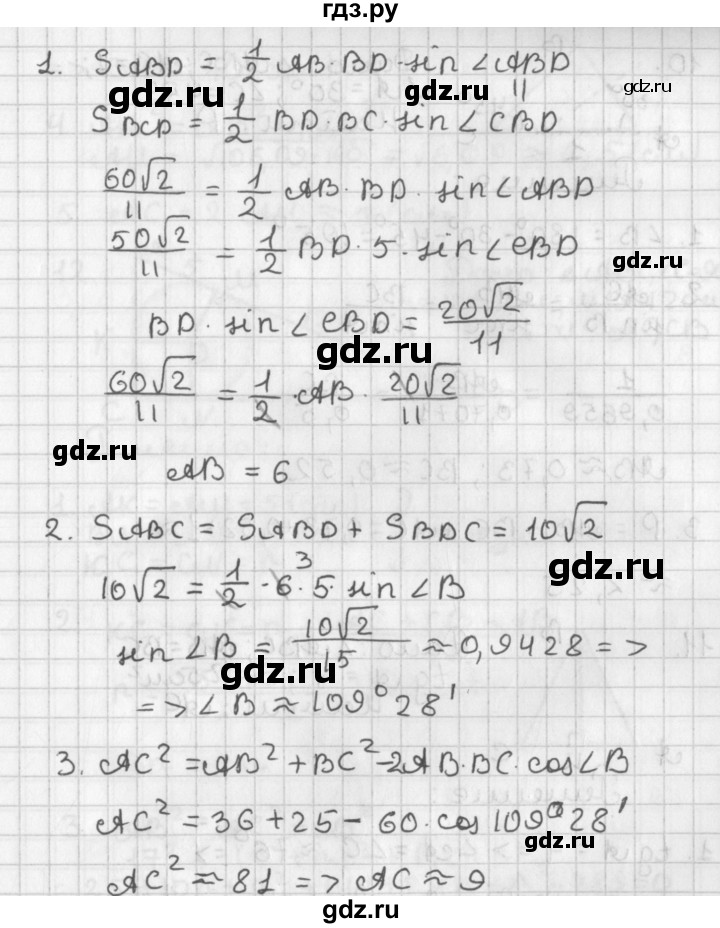 гдз.ру
1. SABD = 1/2 AB·BD·sin∠ABD
gdz.ru gdz.ru
SBCD = 1/2 BD·BC·sin∠CBD
60√2/11 = 1/2 AB·BD·sin∠ABD
50√2/11 = 1/2 BD·5·sin∠CBD
gdz.ru
BD·sin∠CBD = 20√2/11
gdz.ru
60√2/11 = 1/2·AB·20√2/11
gdz.ru
AB = 6
2. SABC = SABD + SBDC = 10√2
gdz.ru
10√2 = 1/2·6·5·sin∠B
3
sin∠B = 10√2/15 ≈ 0,9428 =>
gdz.ru
=> ∠B ≈ 109°28'
3. AC² = AB² + BC² - 2AB·BC·cos∠B
AC² = 36 + 25 - 60·cos109°28'
gdz.ru
AC² ≈ 81 => AC ≈ 9
gdz.ru